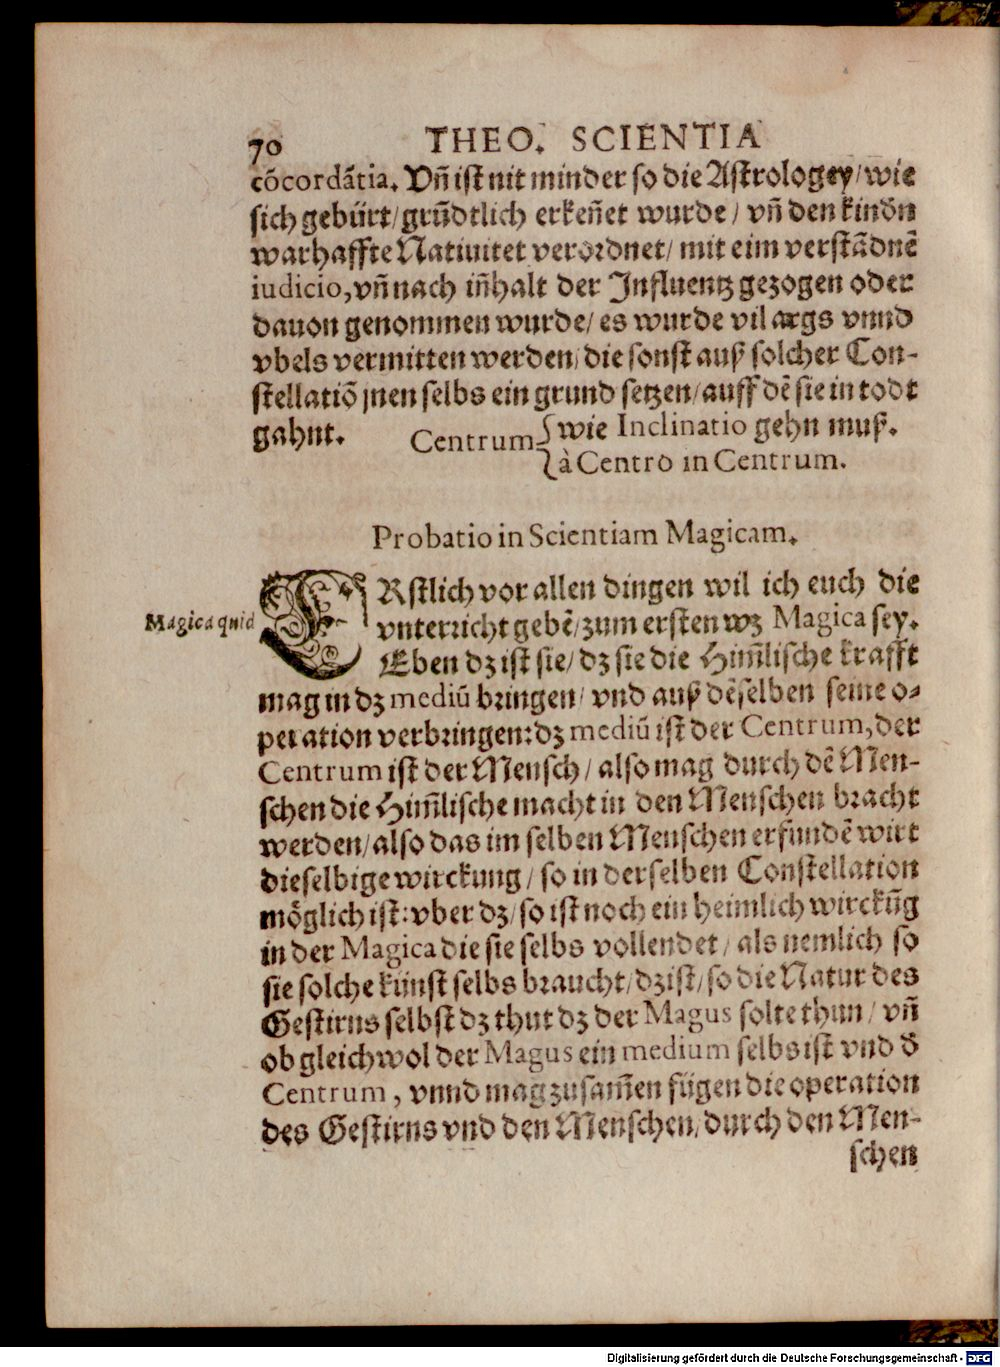 70 THEO. SCIENTIA
cõcordãtia. Vñ ist nit minder so die Astrologey/ wie
sich gebürt/ grũdtlich erkeñet wurde/ vñ den kindñ
warhaffte Natiuitet verordnet/ mit eim verstãdnẽ
iudicio, vñ nach iñhalt der Influentz gezogen oder
dauon genommen wurde/ es wurde vil args vnnd
vbels vermitten werden/ die sonst auß solcher Con-
stellatiõ jnen selbs ein grund setzen/ auff dẽ sie in todt
gahnt. Centrum { wie Inclinatio gehn muß.
à Centro in Centrum.
Probatio in Scientiam Magicam.
Magica quid
ERstlich vor allen dingen wil ich euch die
vnterricht gebẽ/ zum ersten wz Magica sey.
Eben dz ist sie/ dz sie die Him̃lische krafft
mag in dz mediũ bringen/ vnd auß dẽselben seine o-
peration verbringen: dz mediũ ist der Centrum, der
Centrum ist der Mensch/ also mag durch dẽ Men-
schen die Him̃lische macht in den Menschen bracht
werden/ also das im selben Menschen erfundẽ wirt
dieselbige wirckung/ so in derselben Constellation
möglich ist: vber dz/ so ist noch ein heimlich wirckũg
in der Magica die sie selbs vollendet/ als nemlich so
sie solche künst selbs braucht/ dz ist/ so die Natur des
Gestirns selbst dz thut dz der Magus solte thun/ vñ
ob gleichwol der Magus ein medium selbs ist vnd ď
Centrum, vnnd mag zusam̃en fügen die operation
des Gestirns vnd den Menschen/ durch den Men-
schen
Digitalisierung gefördert durch die Deutsche Forschungsgemeinschaft - DFG